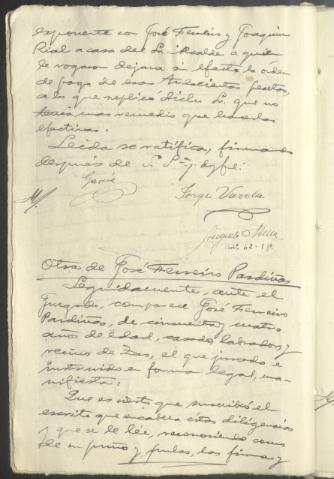 exponente con José Ferreiro y Joaquin
Rial a casa del Sr. Alcalde a quien
le rogaron dejara sin efecto la orden
de pago de esas doscientas pesetas,
a lo que replicó dicho Sr. que no
tenia mas remedio que hacerlas
efectivas.
Leida se ratifica, firmando
después de S. Sª y doy fé:
Jorge Varela
Otra de José Ferreiro Pardiñas
Seguidamente, ante el
Juzgado, comparece José Ferreiro
Pardiñas, de cincuenta y cuatro
años de edad, casado labrador y
vecino de Zas, el que jurado e
instruido en forma legal, ma-
nifiesta:
Que es cierto que suscribió el
escrito que encabeza estas diligencias
y que se le lée, reconociendo como
de su puño y letra, la firma y